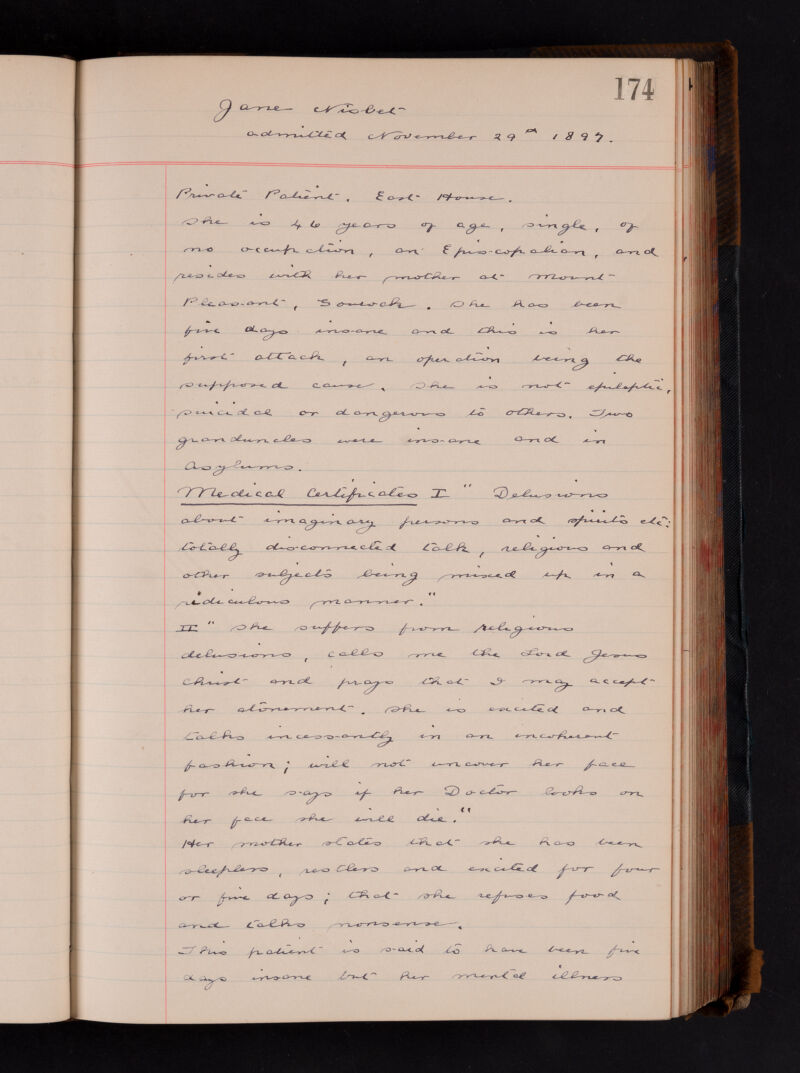 174
Jane Nisbet
admitted November 29th 1897.
Private Patient. East House.
She is 46 years of age, single, of
no occupation, an Episcopalian, and
resides with her mother at Mount
Pleasant, Gourock. She has been
five days insane and this is her
first attack, an operation being the
supposed cause. She is not epileptic,
suicidal or dangerous to others. Two
granduncles were insane and in
Asylums.
Medical Certificates I " Delusions
about imaginary persons and spirits etc:
totally disconnected talk, religious and
other subjects being mixed up in a
ridiculous manner."
II " She suffers from religious
delusions, calls me the Lord Jesus
Christ and prays that I may accept
her atonement. She is excited and
talks incessantly in an incoherent
fashion; will not uncover her face
for she says if her Doctor looks on
her face she will die."
Her mother states that she has been
sleepless, restless and excited for four
or five days; that she refuses food
and talks nonsense.
This patient is said to have been five
days insane but her mental illness